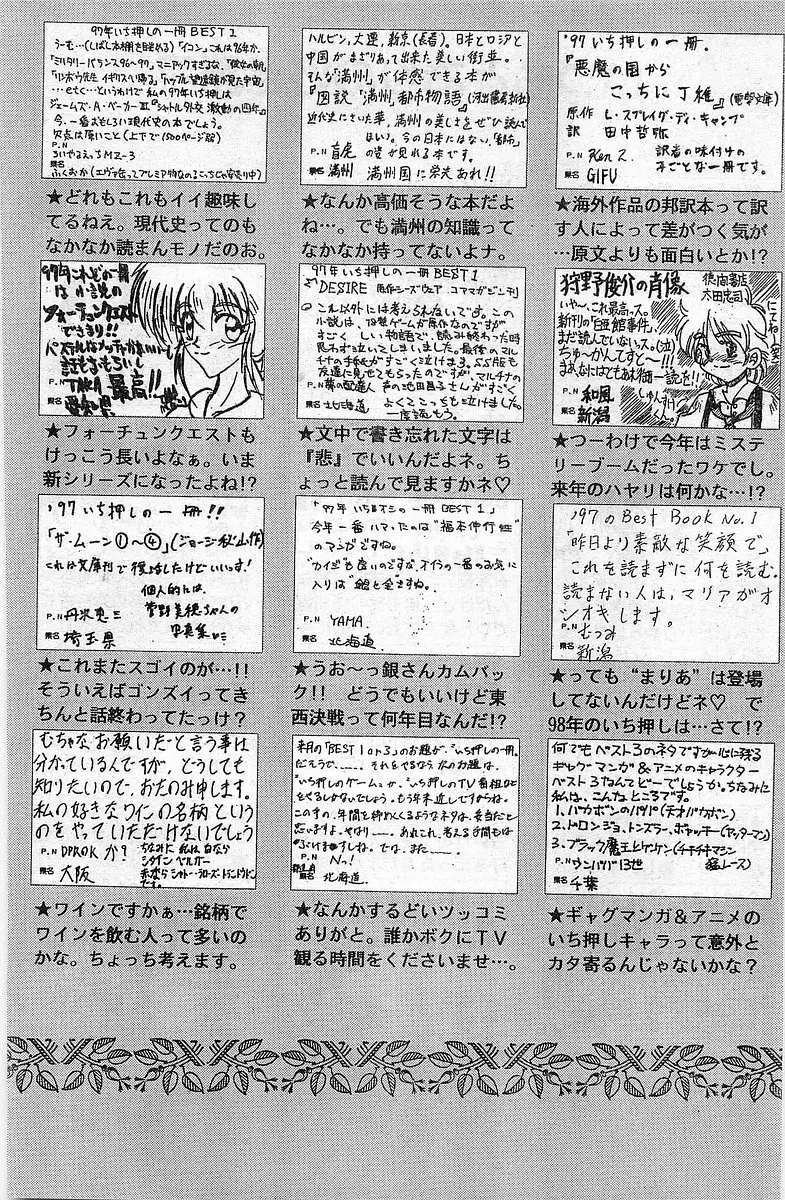 '97年いち押しの一冊 BEST1
うーむ…(しばし本棚を眺める)「イコン」これは96年か、
…etc…というわけで私の97年いち押しは
ジェームズ・A・ベーカーⅢ『シャトル外交 激動の四年』
今、一番おもしろい現代史の本でしょう。
P.N
ちいやるえっちMZ-3
県名
★どれもこれもイイ趣味し
てるねえ。現代史ってのも
なかなか読まんモノだのお。
ハルビン,大連,新京(長春)。日本とロシアと
中国がまざりあって出来た美しい街並。.
そんな「満州」が体感できる本が
『図説「満州」都市物語』(河出書房新社)
近代史にさいた華。満州の美しさをぜひ読んで
ほしい。今の日本にはない、「都市」
P.N 盲虎 の姿が見れる本です。
県名 満州 満州国に栄えあれ!!
★なんか高価そうな本だよ
ね…。でも満州の知識って
なかなか持ってないよナ。
'97 いち押しの一冊.
『悪魔の国から
こっちに丁稚』(電撃文庫)
原作 L・スプレイグ・ディ・キャンプ
訳 田中哲弥
P.N Ken Z. 訳者の味付けの
県名 GIFU みごとな一冊です。
★海外作品の邦訳本って訳
す人によって差がつく気が
…原文よりも面白いとか!?
97年これぞの一冊
は小説の
フォーチュンクエスト
できまり!!
P.N TAKA 最高!!
県名 愛知県
★フォーチュンクエストも
けっこう長いよなぁ。いま
新シリーズになったよね!?
97年いち押しの一冊 BEST1
DESIRE 原作シーズウェア コアマガジン刊
これ以外には考えられないです。この
小説は、18禁ゲームが原作なのですが
すごく しい物語で、読み終わった時
思わず泣いてしまいました。最後のマル
チナの手紙がすごく泣けます。SS版も
友達に見せてもらったのですが、マルチナの
P.N 夢の配達人 声の池田昌子さんがすごく
よくてこっちも泣けました。
県名 北海道 一度読もう。
★文中で書き忘れた文字は
『悲』でいいんだよネ。ち
ょっと読んで見ますかネ♡
狩野俊介の肖像 徳間書店
太田忠司
いや〜、これ最高っス。
新刊の「百舌館事件」、
まだ読んでいないっス。(泣)
ちゅーかんですと〜!!!
P.N 和風
県名 新潟
★つーわけで今年はミステ
リーブームだったワケでし。
来年のハヤリは何かな…!?
'97 いち押しの一冊!!
「ザ・ムーン①〜④」(ジョージ秋山作)
これは文庫刊で復活したけどいいっす!
個人的には、
菅野美穂ちゃんの
写真集…
P.N 丹次恵三
県名 埼玉県
★これまたスゴイのが…!!
そういえばゴンズイってき
ちんと話終わってたっけ?
「'97年 いちオシの一冊 BEST1」
今年一番ハマったのは"福本伸行"
のマンガですね。
"カイジ"も良いのですが、オイラの一番のお気に
入りは"銀と金"ですね。
P.N YAMA
県名 北海道.
★うお〜っ銀さんカムバッ
ク!! どうでもいいけど東
西決戦って何年目なんだ!?
'97のBest Book No.1
「昨日より素敵な笑顔で」
これを読まずに何を読む.
読まない人は,マリアがオ
シオキします。
P.N むつみ
県名 新潟
★っても“まりあ”は登場
してないんだけどネ♡ で
98年のいち押しは…さて!?
むちゃなお願いだと言う事は
分かっているんですが、どうしても
知りたいので、おたのみ申します。
私の好きなワインの名柄という
のをやっていただけないでしょう
か?
P.N DPROK ちなみに私は白なら
シタイン ベルガー
県名 大阪
です。
★ワインですかぁ…銘柄で
ワインを飲む人って多いの
かな。ちょっち考えます。
来月の「BEST1 or 3」のお題が、"いち押しの一冊"
だそうで……、それをやるなら次のお題は、
"いち押しのゲーム"とか、"いち押しのTV番組"など
をやるしかないでしょう。もう年末近しですからね。
この年の、年間を締めくくるようなネタは、妥当だと
思いますよ、やはり……。あれこれ、考える手間も
はぶけますしね。では、また……。
P.N Nっ!
県名 北海道.
★なんかするどいツッコミ
ありがと。誰かボクにＴＶ
観る時間をくださいませ…。
何でもベスト3のネタですが心に残る
ギャグマンガ&アニメのキャラクター
ベスト3なんてどーでしょうか。ちなみに
私は、こんなところです。
1. バカボンのパパ(天才バカボン)
2. ドロンジョ、トンズラー、ボヤッキー(ヤッターマン)
3. ブラック魔王とケンケン(チキチキマシン
猛レース)
P.N ウンババ13世
県名 千葉
★ギャグマンガ＆アニメの
いち押しキャラって意外と
カタ寄るんじゃないかな?